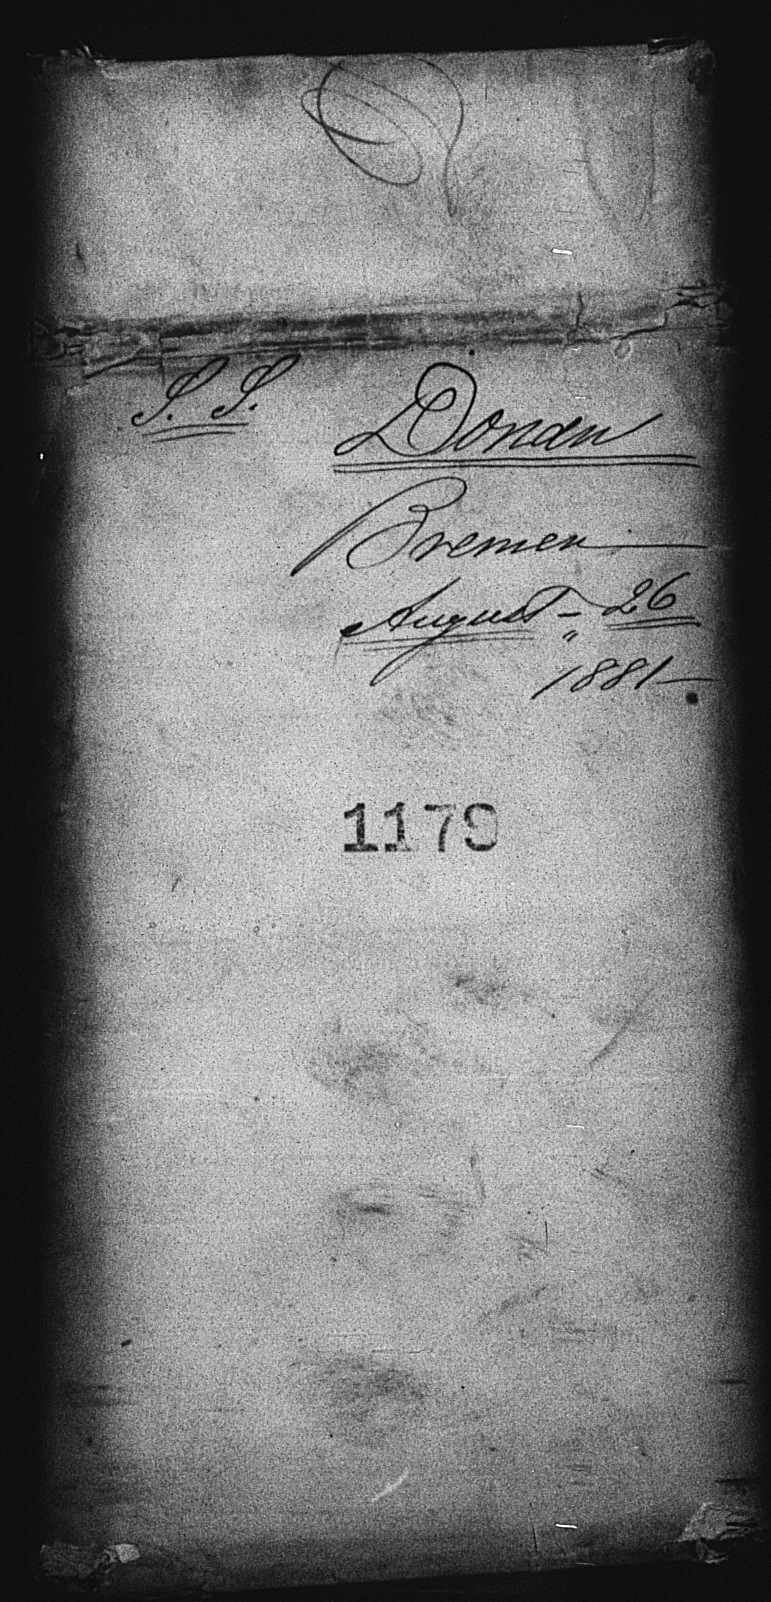 S. S. Donau
Bremen
August - 26
" 1881 -
1179